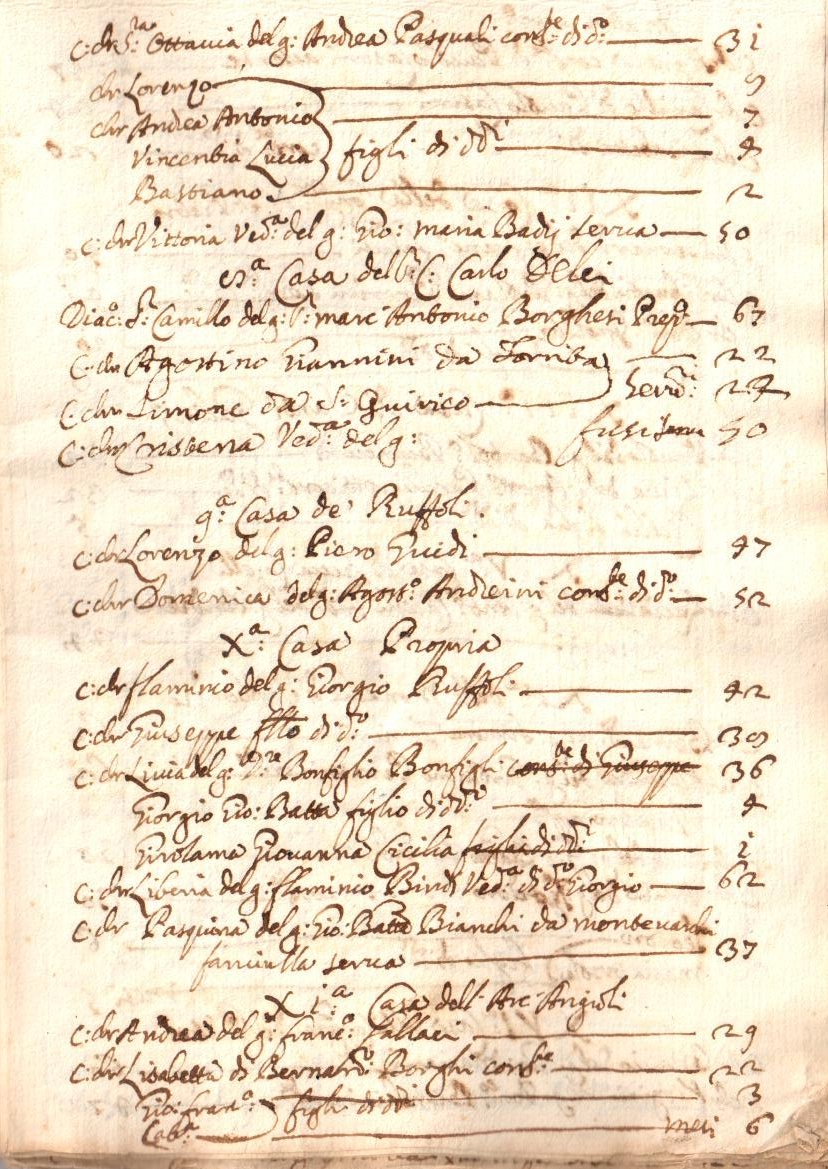 C: ch S.ra Ottavia del g: Andrea Pasquali cons.te di d.o 31
chr Lorenzo 9
chr Andrea Antonio 7
Vincentia Lucia figli di dd.i 4
Bastiano 2
C: chr Vittoria Ved.a del g: Gio: Maria Badij serva 50
Casa del S.r C: Carlo Delci
Diac.o S.r Camillo del g: S.r Marc Antonio Borghesi Prop.o 67
C: chr Agostino Giannini da Torrita 22
C: chr Simone da S. Quirico Serv.ri 24
C: chr Cristena Ved.a del g: fusi serva 50
9.a Casa de Ruffoli.
C: chr Lorenzo del g: Piero Guidi 47
C: chr Domenica del g: Agost.o Andreini cons.te di d.o 52
X.a Casa Propria
C: chr flaminio del g: Giorgio Ruffoli 42
C: chr Giuseppe ffto di d.o 39
C: chr Livia del g: Bonfiglio Bonfigli cons.te di Giuseppe 36
Giorgio Gio: Batta figlio di dd.i 4
Girolama Giovanna Cicilia figlia di dd.i 1
C: chr Liberia del g: flaminio Bindi Ved.a di d.o Giorgio 62
C: chr Pasquina del g: Gio: Batta Bianchi da montevarchi
fanciulla serva 37
X i.a Casa dell' Arc Angioli
C: chr Andrea del g: franc.o Pallaci 29
C: chr Lisabetta di Bernard.o Borghi cons.te 22
Gio: fran.o figli di dd.i 3
Cat.a mesi 6